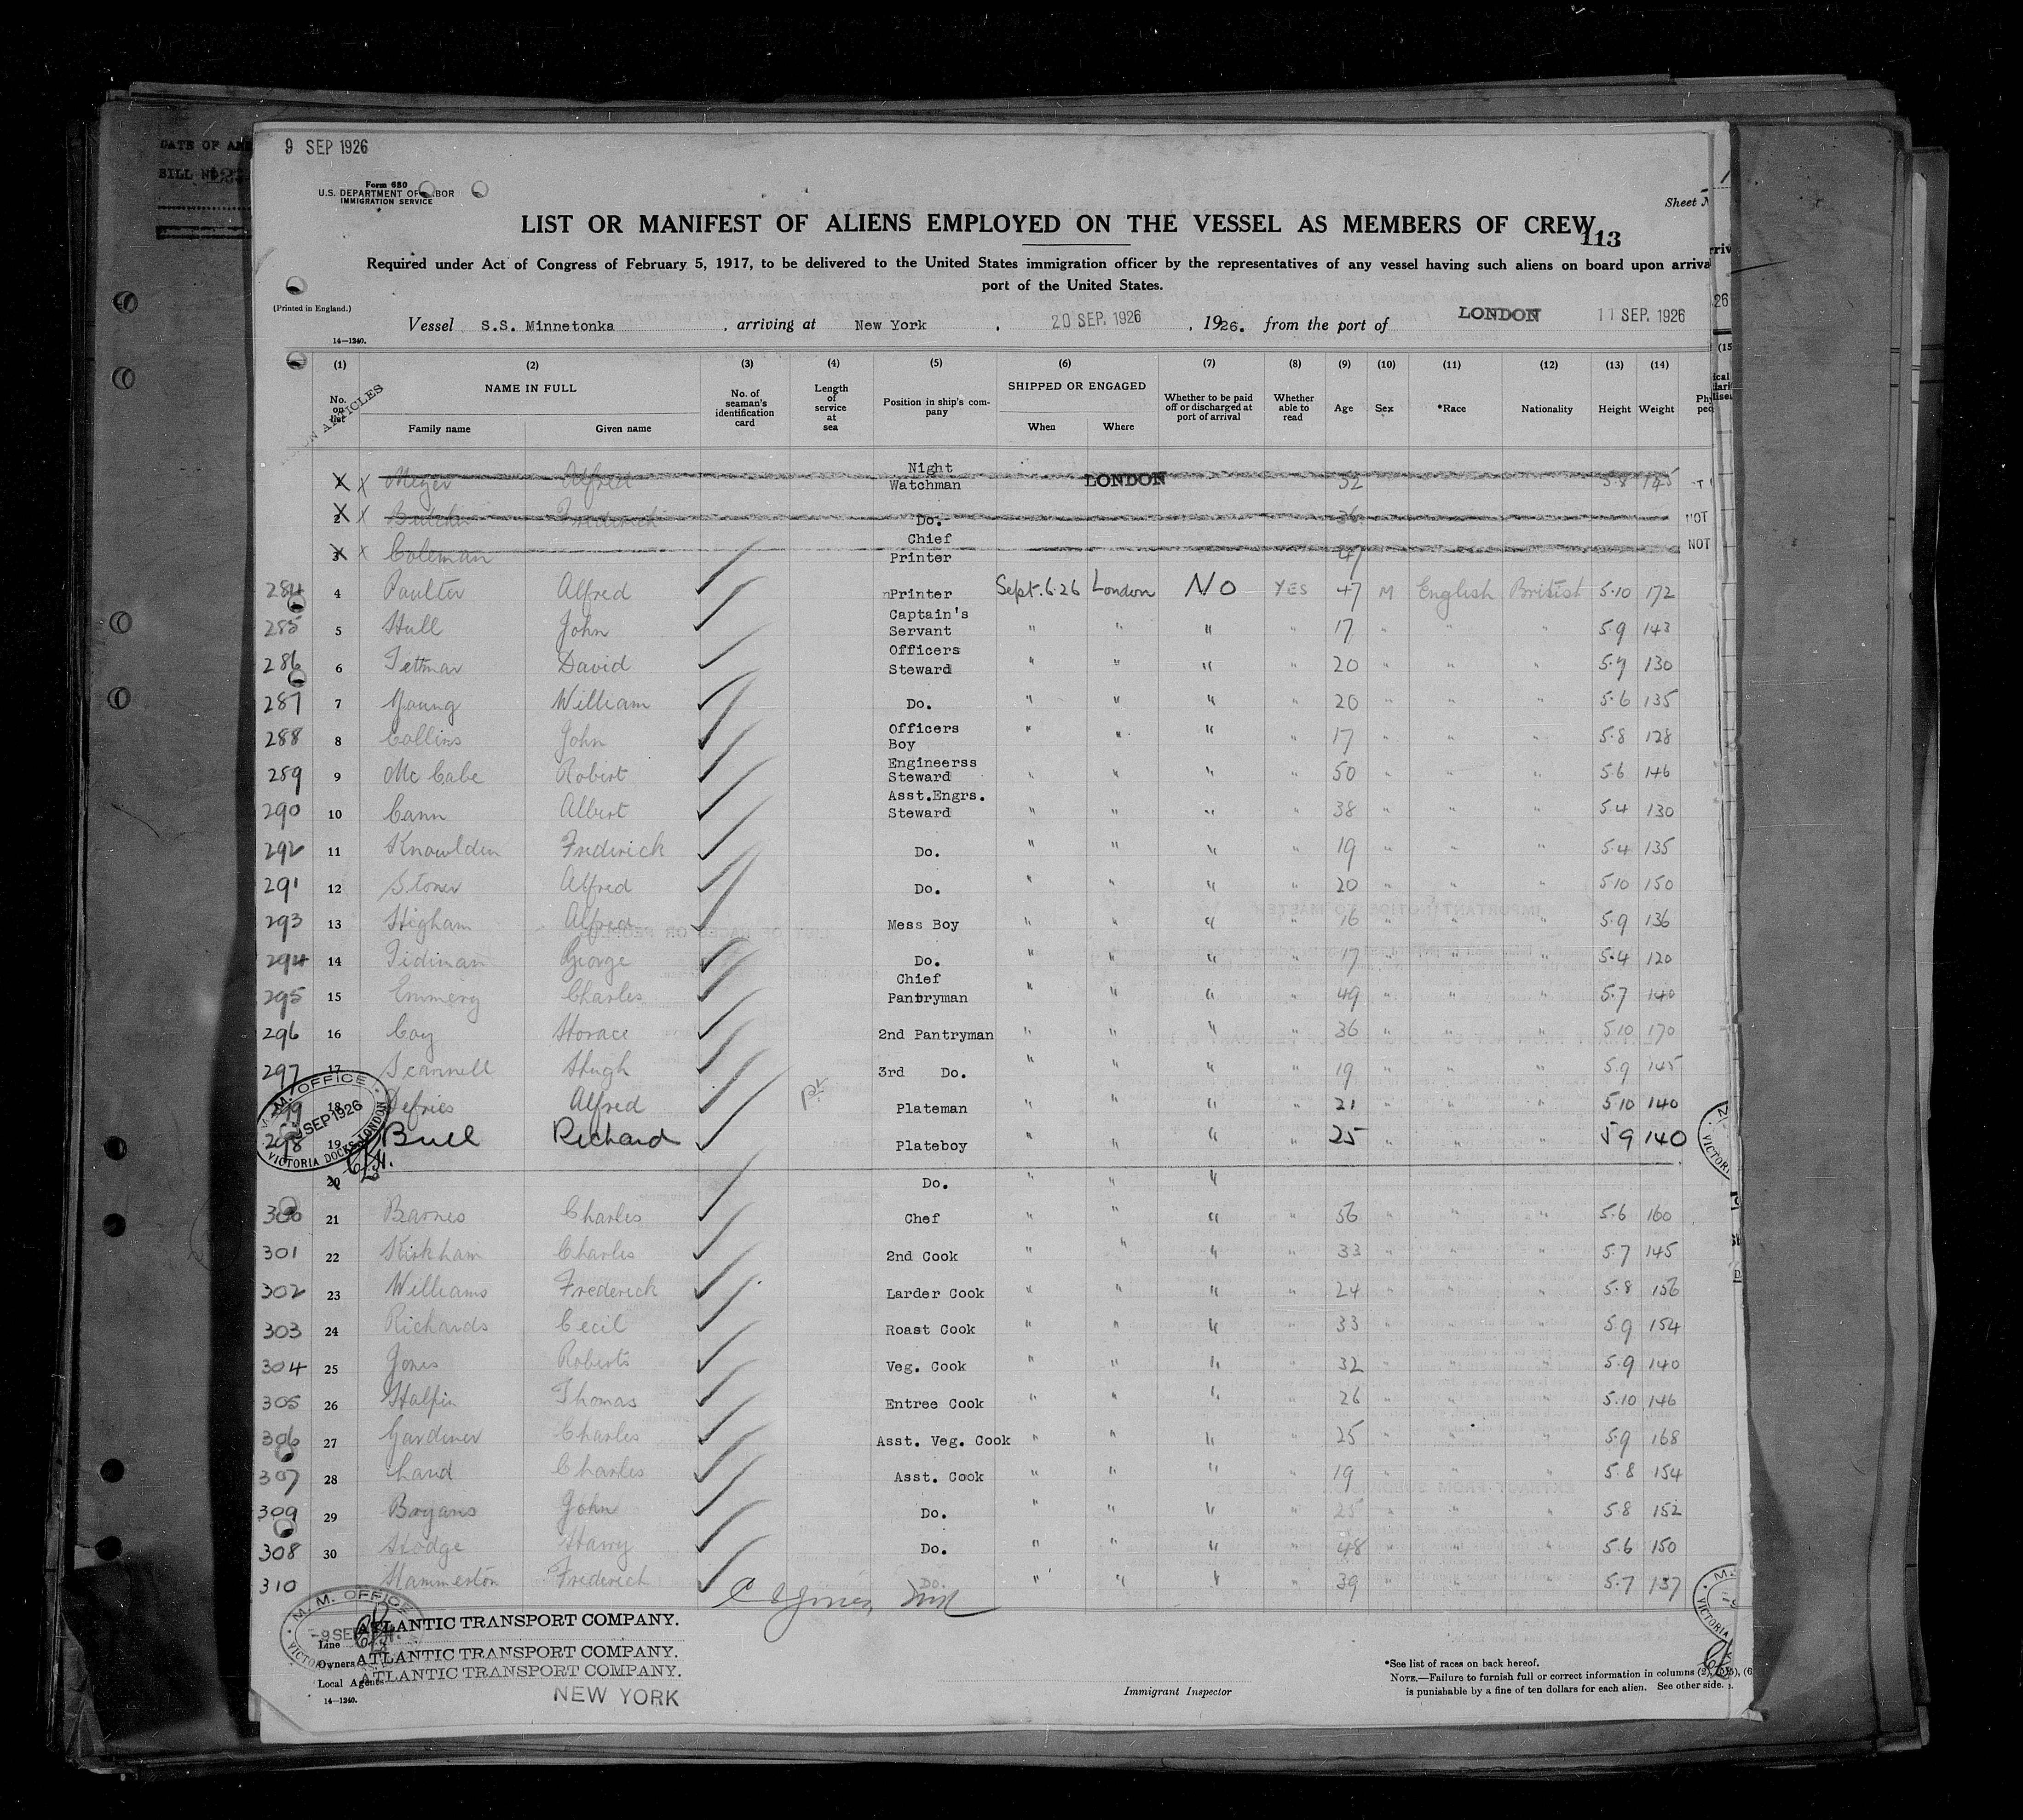 DATE OF
BILL NO
9 SEP 1926
Form 680
U.S. DEPARTMENT OF LABOR
IMMIGRATION SERVICE
Sheet N
LIST OR MANIFEST OF ALIENS EMPLOYED ON THE VESSEL AS MEMBERS OF CREW
113
Required under Act of Congress of February 5, 1917, to be delivered to the United States immigration officer by the representatives of any vessel having such aliens on board upon arriva
port of the United States.
(Printed in England.)
Vessel S.S. Minnetonka , arriving at New York , 20 SEP. 1926 , 1926. from the port of LONDON 11 SEP. 1926
14—1240.
(1) (2) (3) (4) (5) (6) (7) (8) (9) (10) (11) (12) (13) (14) (15
No. on list NAME IN FULL No. of seaman's identification card Length of service at sea Position in ship's company SHIPPED OR ENGAGED Whether to be paid off or discharged at port of arrival Whether able to read Age Sex *Race Nationality Height Weight
Family name Given name When Where
ARTICLES
X X Meyer Alfred Night Watchman LONDON 32 5 8 145
2 X Butcher Frederick Do. 36 NOT
3 X Coleman Chief Printer 47 NOT
284 4 Paulter Alfred Printer Sept. 6.26 London NO YES 47 M English British 5.10 172
285 5 Hull John Captain's Servant " " " " 17 " " " 5.9 143
286 6 Tettmar David Officers Steward " " " " 20 " " " 5.7 130
287 7 Young William Do. " " " " 20 " " " 5.6 135
288 8 Collins John Officers Boy " " " " 17 " " " 5.8 128
289 9 Mc Cabe Robert Engineerss Steward " " " " 50 " " " 5.6 146
290 10 Cann Albert Asst.Engrs. Steward " " " " 38 " " " 5.4 130
292 11 Knowlden Frederick Do. " " " " 19 " " " 5.4 135
291 12 Stoner Alfred Do. " " " " 20 " " " 5.10 150
293 13 Higham Alfred Mess Boy " " " " 16 " " " 5.9 136
294 14 Tidiman George Do. " " " " 17 " " " 5.4 120
295 15 Emmerg Charles Chief Pantryman " " " " 49 " " " 5.7 140
296 16 Coy Horace 2nd Pantryman " " " " 36 " " " 5.10 170
297 17 Scannell Hugh 3rd Do. " " " " 19 " " " 5.9 145
299 18 Defries Alfred Plateman " " " " 21 " " " 5.10 140
298 19 Bull Richard Plateboy " " " " 25 " " " 5 9 140
20 Do. " " "
300 21 Barnes Charles Chef " " " " 56 " " " 5.6 160
301 22 Kirkham Charles 2nd Cook " " " " 33 " " " 5.7 145
302 23 Williams Frederick Larder Cook " " " " 24 " " " 5.8 156
303 24 Richards Cecil Roast Cook " " " " 33 " " " 5.9 154
304 25 Jones Roberts Veg. Cook " " " " 32 " " " 5.9 140
305 26 Halpin Thomas Entree Cook " " " " 26 " " " 5.10 146
306 27 Gardiner Charles Asst. Veg. Cook " " " " 25 " " " 5.9 168
307 28 Laud Charles Asst. Cook " " " " 19 " " " 5.8 154
309 29 Bryans John Do. " " " " 25 " " " 5.8 152
308 30 Hodge Harry Do. " " " " 48 " " " 5.6 150
310 Hammerton Frederick Do. " " " " 39 " " " 5.7 137
M. M. OFFICE
9 SEP 1926
VICTORIA DOCKS, LONDON
M. M. OFFICE
-9 SEP
Line ATLANTIC TRANSPORT COMPANY.
Owners ATLANTIC TRANSPORT COMPANY.
Local Agents ATLANTIC TRANSPORT COMPANY.
NEW YORK
14—1240.
Immigrant Inspector
*See list of races on back hereof.
NOTE.—Failure to furnish full or correct information in columns (2), (5), (6
is punishable by a fine of ten dollars for each alien. See other side.